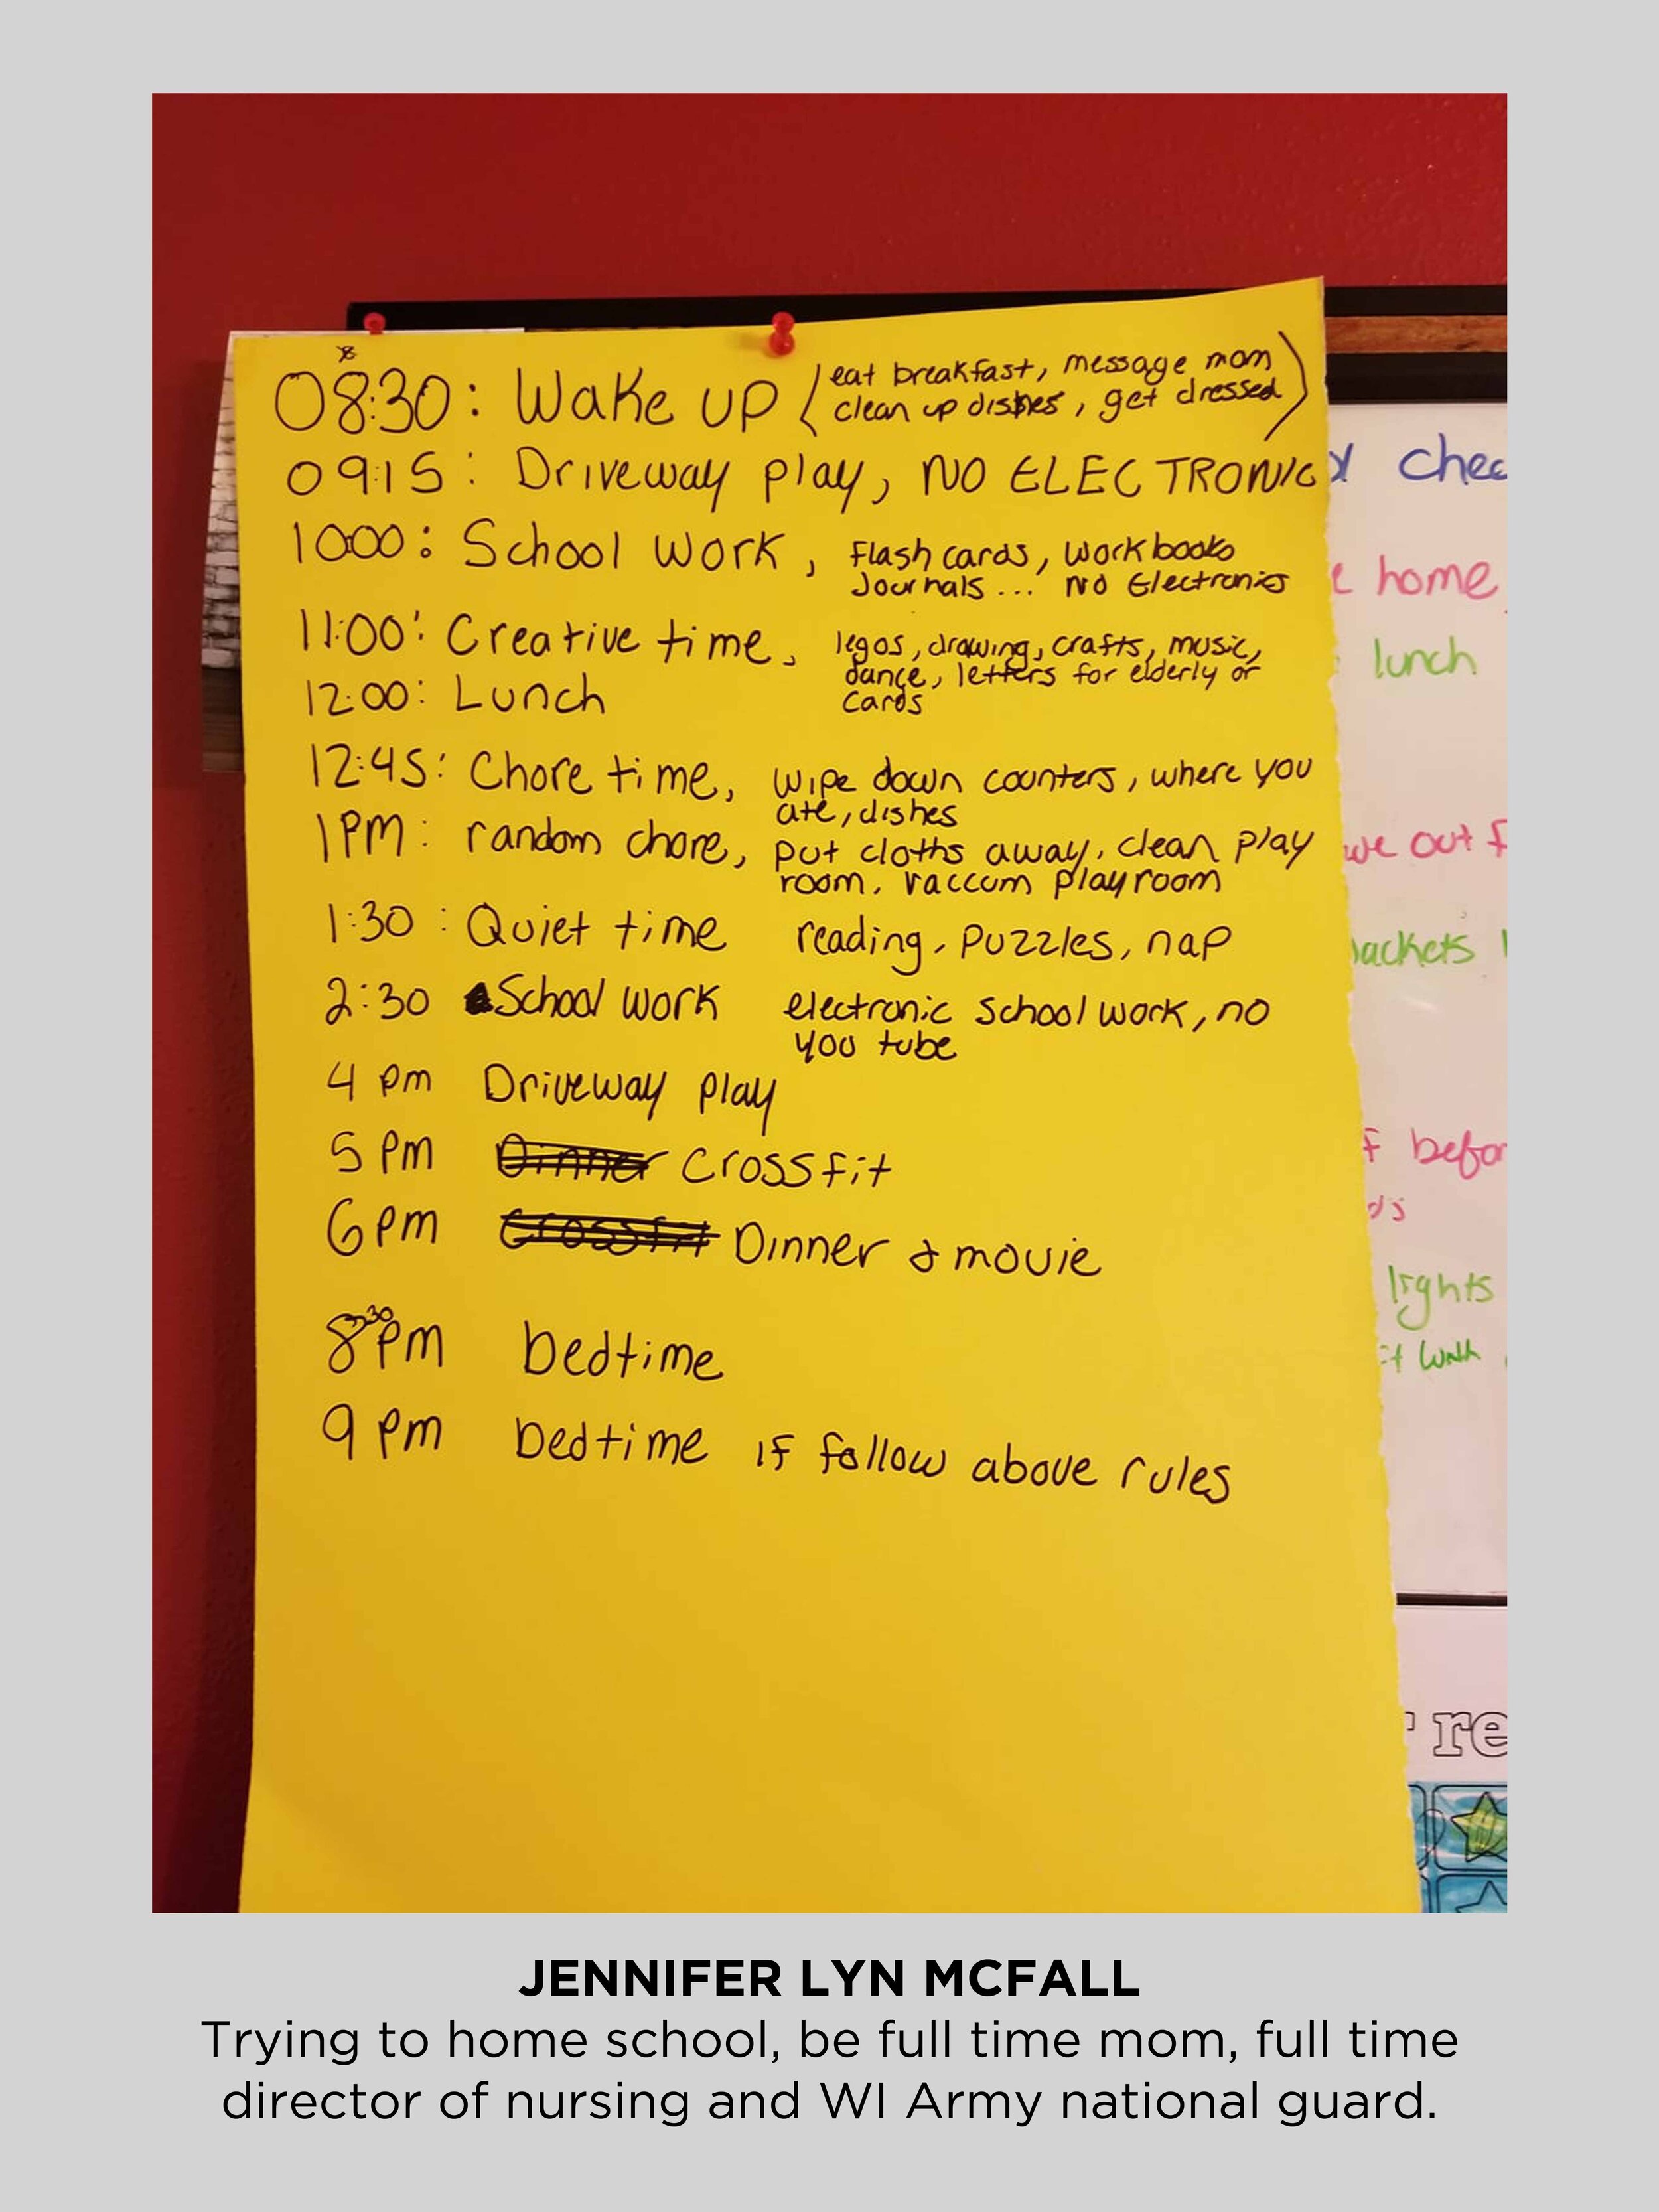 08:30: Wake up (eat breakfast, message mom
clean up dishes, get dressed)
09:15: Driveway play, NO ELECTRONIC
10:00: School work, Flash cards, work books
Journals... No Electronics
11:00: Creative time, legos, drawing, crafts, music,
dance, letters for elderly or
cards
12:00: Lunch
12:45: Chore time, wipe down counters, where you
ate, dishes
1PM: random chore, put cloths away, clean play
room, vaccum playroom
1:30: Quiet time reading, puzzles, nap
2:30 School work electronic school work, no
you tube
4 pm Driveway play
5 pm Dinner Crossfit
6pm Crossfit Dinner & movie
8:30 pm bedtime
9 pm bedtime if follow above rules
chec
home
lunch
we out f
ackets
befor
ds
lights
re
JENNIFER LYN MCFALL
Trying to home school, be full time mom, full time
director of nursing and WI Army national guard.